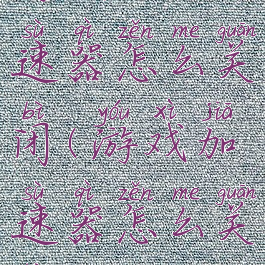 sù qì zěn me guān
速器怎么关
bì yóu xì jiā
闭(游戏加
sù qì zěn me guān
速器怎么关